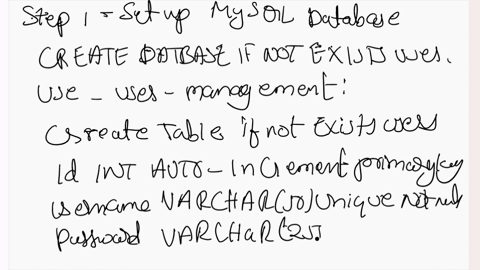 Step 1 - Set up MySQL Database
CREATE DATBASE IF NOT EXISTS uses.
use _ uses - management :
Create Table if not Exists uses
Id INT AUTO - Increment primary key
username VARCHAR(50) Unique Not null
Password VARCHAR(25